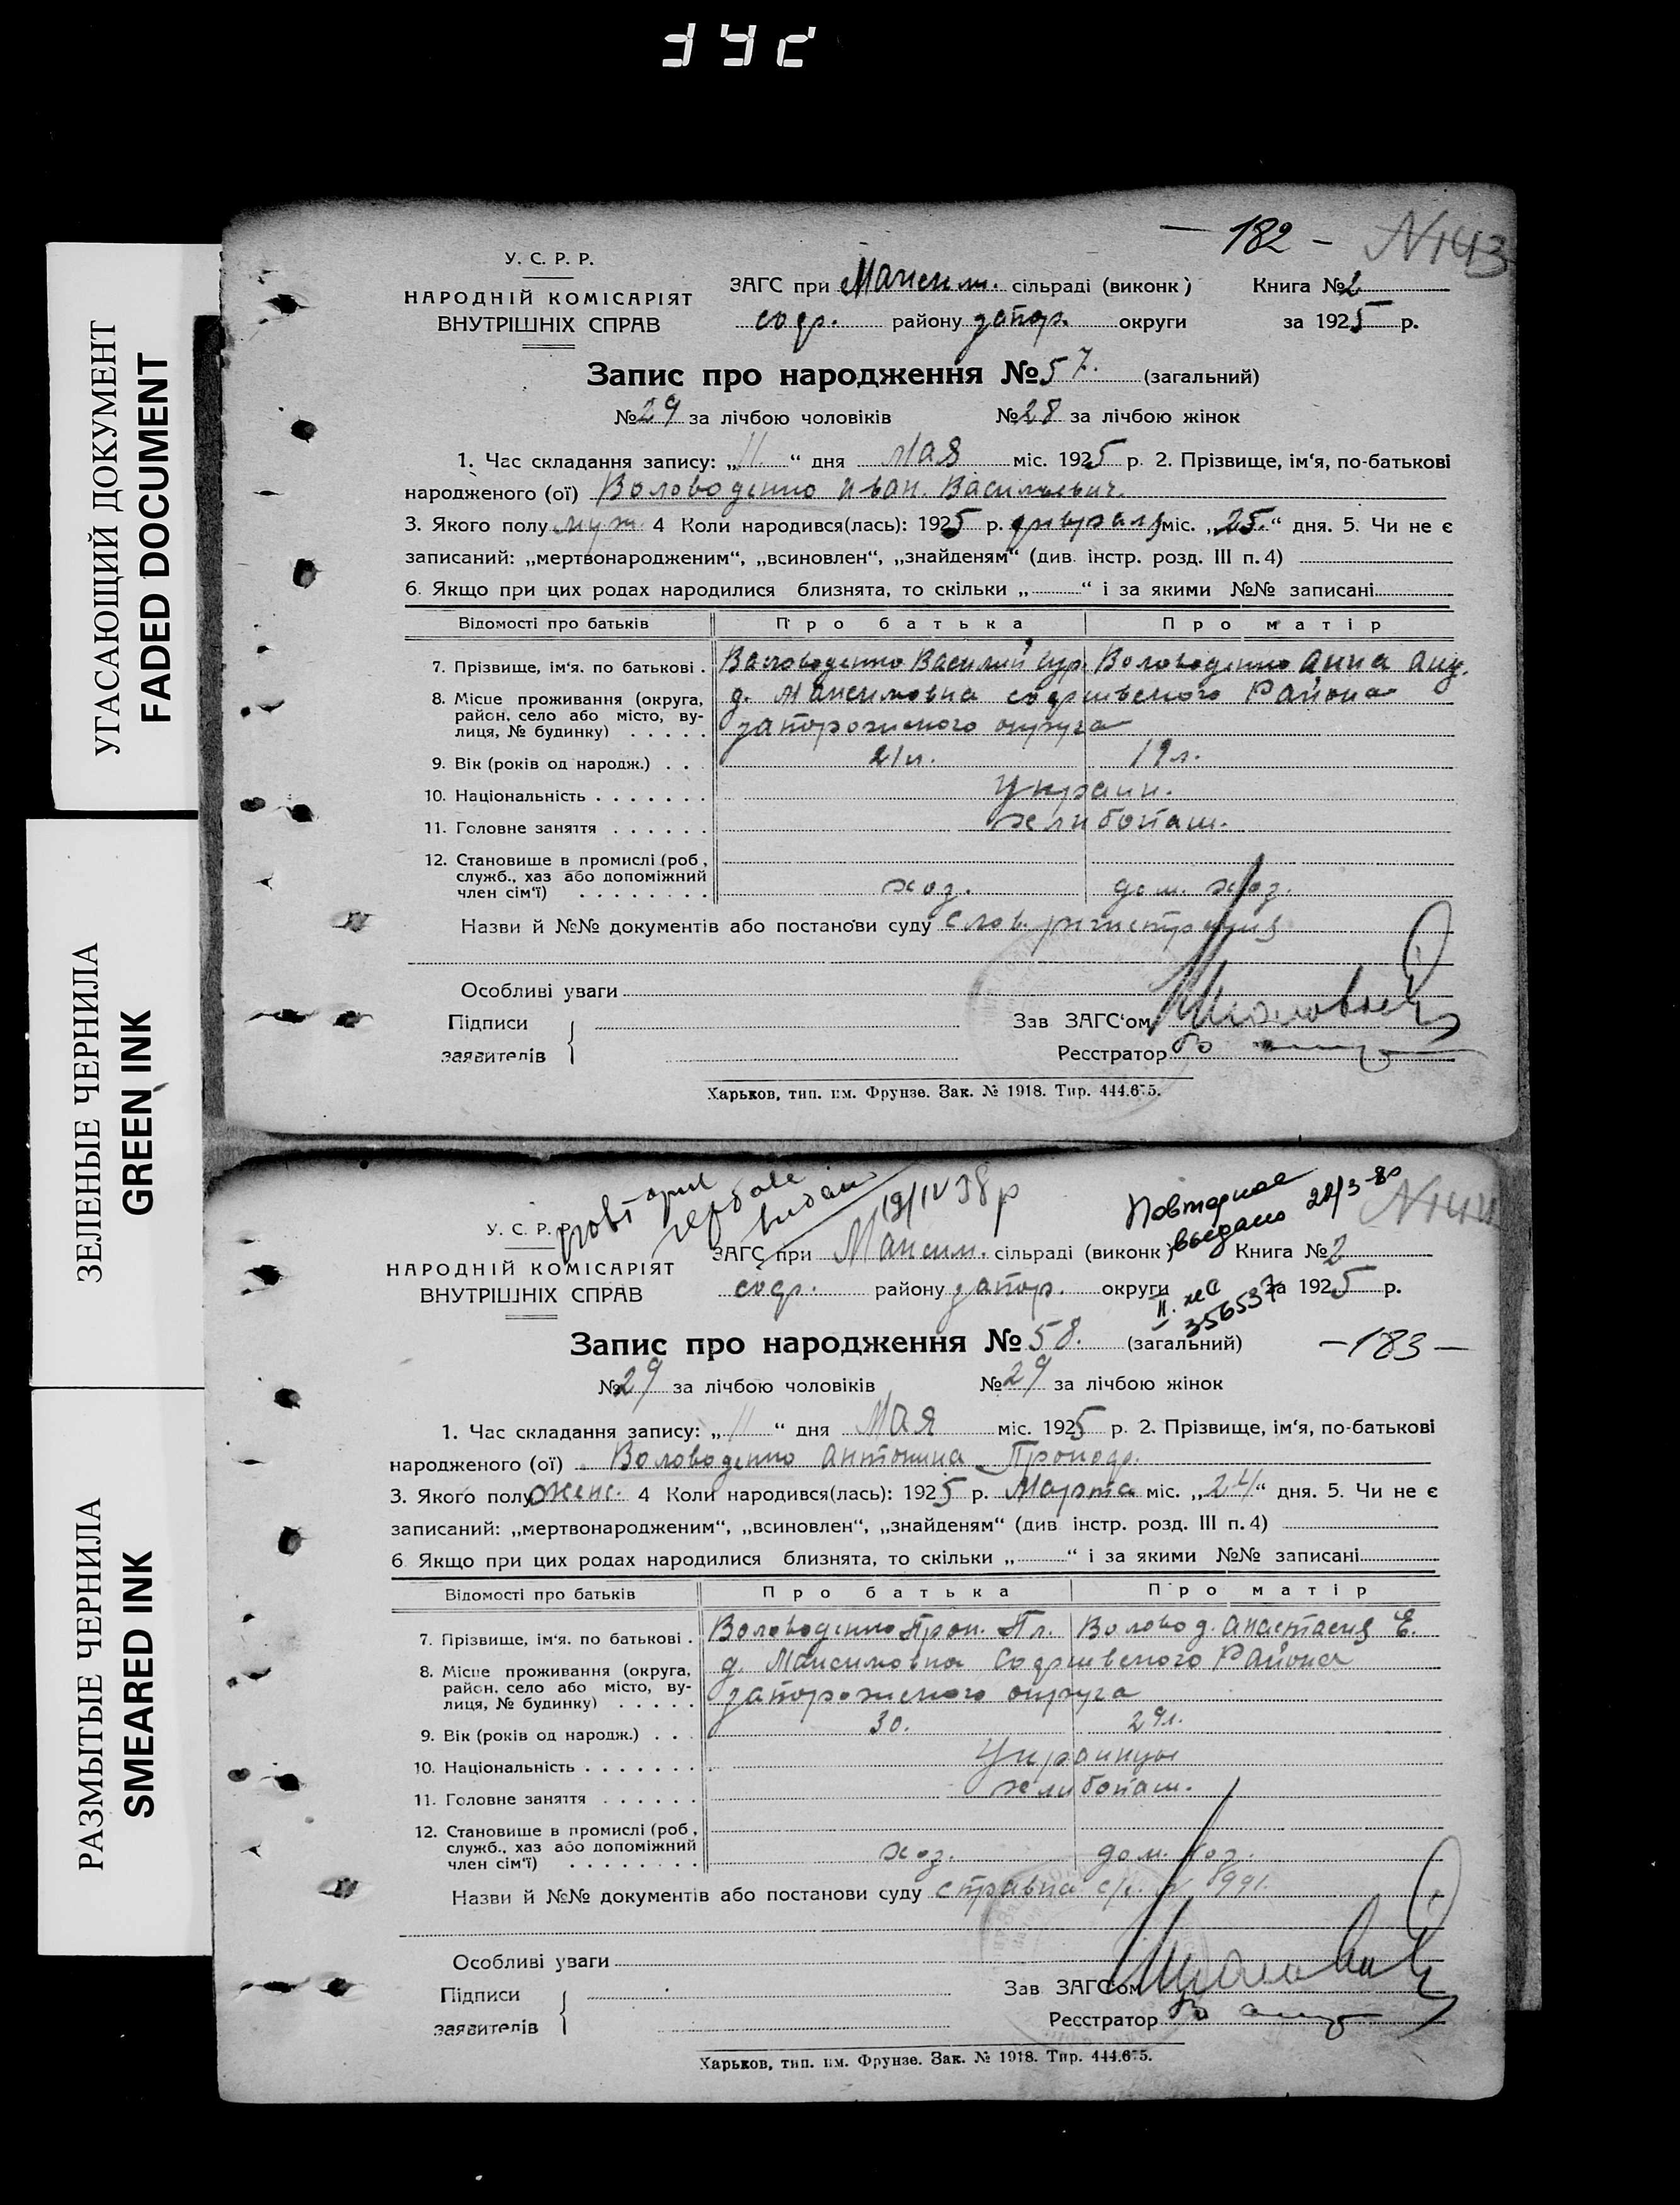 УГАСАЮЩИЙ ДОКУМЕНТ
FADED DOCUMENT
ЗЕЛЕНЫЕ ЧЕРНИЛА
GREEN INK
РАЗМЫТЫЕ ЧЕРНИЛА
SMEARED INK
— 182 — N143
У. С. Р. Р.
НАРОДНІЙ КОМІСАРІЯТ
ВНУТРІШНІХ СПРАВ
ЗАГС при Максим. сільраді (виконк) Книга № 2
соф. району запор. округи за 1925 р.
Запис про народження № 57. (загальний)
№ 29 за лічбою чоловіків № 28 за лічбою жінок
1. Час складання запису: „11“ дня мая міс. 1925 р. 2. Прізвище, ім‘я, по-батькові
народженого (ої) Воловоденко Иван Васильевич.
3. Якого полу муж. 4 Коли народився(лась): 1925 р. февраля міс. „25.“ дня. 5. Чи не є
записаний: „мертвонародженим“, „всиновлен“, „знайденям“ (див. інстр. розд. III п. 4)
6. Якщо при цих родах народилися близнята, то скільки „ “ і за якими №№ записані
Відомості про батьків Про батька Про матір
7. Прізвище, ім‘я. по батькові . Воловоденко Василий Воловоденко Анна
8. Місце проживання (округа, район, село або місто, вулиця, № будинку) . . . . . д. Максимовка софиевского Района
запорожского округа
9. Вік (років од народж.) . . 21л. 19л.
10. Національність . . . . . . . Украин.
11. Головне заняття . . . . . . хлибопаш.
12. Становище в промислі (роб, служб., хаз або допоміжний член сім‘ї) . . . . . . . . хоз. дом. хоз.
Назви й №№ документів або постанови суду слов. регистрация
Особливі уваги
Підписи
заявителів
Зав ЗАГС‘ом
Реєстратор
Харьков, тип. им. Фрунзе. Зак. № 1918. Тир. 444.675.
19/IV 38 р
Повторное
выдано 22/3-80
N144
У. С. Р. Р.
НАРОДНІЙ КОМІСАРІЯТ
ВНУТРІШНІХ СПРАВ
ЗАГС при Максим. сільраді (виконк) Книга № 2
соф. району запор. округи за 1925 р.
356537
Запис про народження № 58. (загальний) —183—
№ 29 за лічбою чоловіків № 29 за лічбою жінок
1. Час складання запису: „11“ дня Мая міс. 1925 р. 2. Прізвище, ім‘я, по-батькові
народженого (ої) Воловоденко Антонина Прокоф.
3. Якого полу женс. 4 Коли народився(лась): 1925 р. Марта міс. „24“ дня. 5. Чи не є
записаний: „мертвонародженим“, „всиновлен“, „знайденям“ (див інстр. розд. III п. 4)
6. Якщо при цих родах народилися близнята, то скільки „ “ і за якими №№ записані
Відомості про батьків Про батька Про матір
7. Прізвище, ім‘я. по батькові . Воловоденко Прок. Пл. Воловод. Анастасия Е.
8. Місце проживання (округа, район, село або місто, вулиця, № будинку) . . . . . д. Максимовка Софиевского Района
запорожского округа
9. Вік (років од народж.) . . . 30. 29л.
10. Національність . . . . . . . Украинцы
11. Головне заняття . . . . . . хлибопаш.
12. Становище в промислі (роб, служб., хаз або допоміжний член сім‘ї) . . . . . . . . хоз. дом. хоз.
Назви й №№ документів або постанови суду справка с/с. № 991.
Особливі уваги
Підписи
заявителів
Зав ЗАГС‘ом
Реєстратор
Харьков, тип. им. Фрунзе. Зак. № 1918. Тир. 444.675.